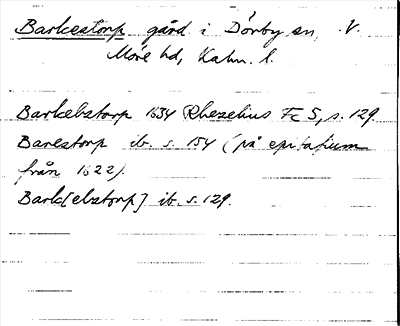 Barkestorp gård i Dörby sn, V.
Möre hd, Kalm. l.
Barkelstorp 1634 Rhezelius Fc 5, s. 129.
Barestorp ib. s. 154 (på epitafium
från 1622).
Bark[elstorp] ib. s. 129.